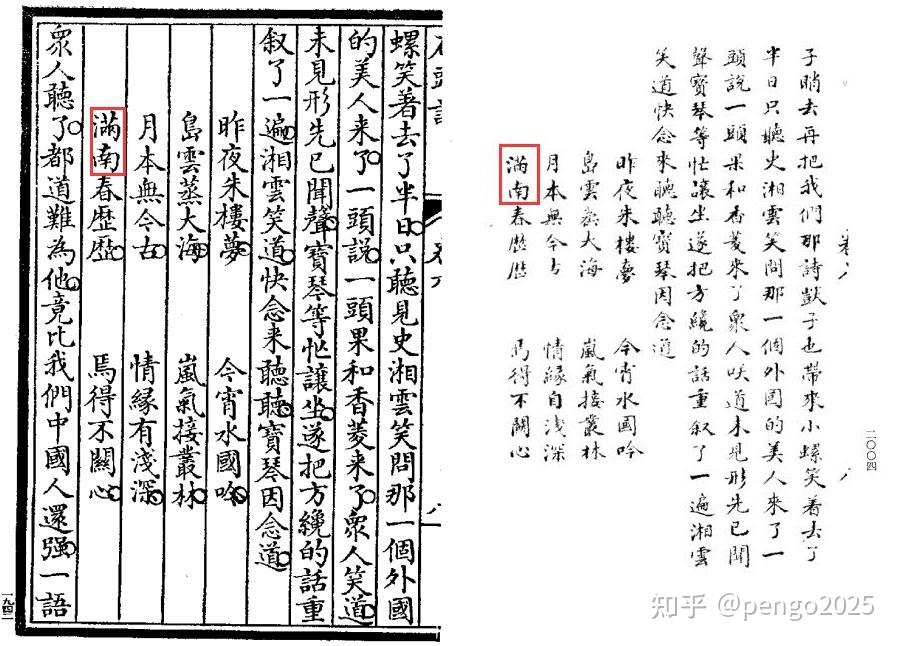 螺笑着去了半日只聽見史湘雲笑問那一個外國
的美人来了一頭說一頭果和香菱来了衆人笑道
未見形先已聞聲寶琴等忙讓坐遂把方纔的話重
叙了一遍湘雲笑道快念来聽聽寶琴因念道
昨夜朱樓夢 今宵水國吟
島雲蒸大海 嵐氣接叢林
月本無今古 情緣有淺深
滿南春歷歷 焉得不關心
衆人聽了都道難為他竟比我們中國人還強一語
二〇〇四
子睄去再把我們那詩獃子也帶來小螺笑着去了
半日只聽史湘雲笑問那一個外國的美人來了一
頭說一頭果和香菱來了衆人咲道未見形先已聞
聲寶琴等忙讓坐遂把方纔的話重叙了一遍湘雲
笑道快念來聽聽寶琴因念道
昨夜朱樓夢 今宵水國吟
島雲蒸大海 嵐氣接叢林
月本無今古 情緣自淺深
滿南春歷歷 焉得不關心
知乎 @pengo2025